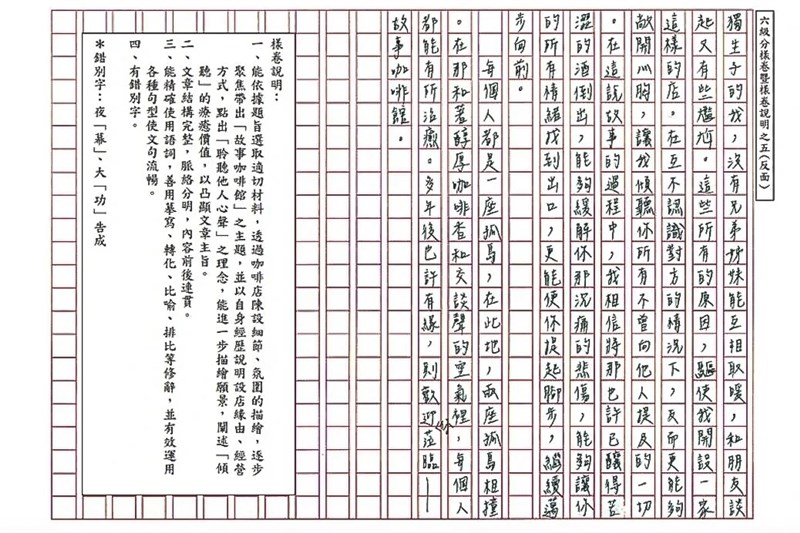 六級分樣卷暨樣卷說明之五(反面)
獨生子的我,沒有兄弟姊妹能互相取暖,和朋友談
起又有些尷尬。這些所有的原因,驅使我開設一家
這樣的店。在互不認識對方的情況下,反而更能夠
敞開心胸,讓我傾聽你所有不曾向他人提及的一切
。在這說故事的過程中,我相信將那也許已釀得苦
澀的酒倒出,能夠緩解你那沉痛的悲傷,能夠讓你
的所有情緒找到出口,更能使你提起腳步,繼續邁
步向前。
每個人都是一座孤島,在此地,兩座孤島相撞
。在那和著醇厚咖啡香和交談聲的空氣裡,每個人
都能有所治癒。多年後也許有緣,則歡迎你蒞臨——
故事咖啡館。
樣卷說明:
一、能依據題旨選取適切材料,透過咖啡店陳設細節、氛圍的描繪,逐步
聚焦帶出「故事咖啡館」之主題,並以自身經歷說明設店緣由、經營
方式,點出「聆聽他人心聲」之理念,能進一步描繪願景,闡述「傾
聽」的療癒價值,以凸顯文章主旨。
二、文章結構完整,脈絡分明,內容前後連貫。
三、能精確使用語詞,善用摹寫、轉化、比喻、排比等修辭,並有效運用
各種句型使文句流暢。
四、有錯別字。
*錯別字:夜「幕」、大「功」告成